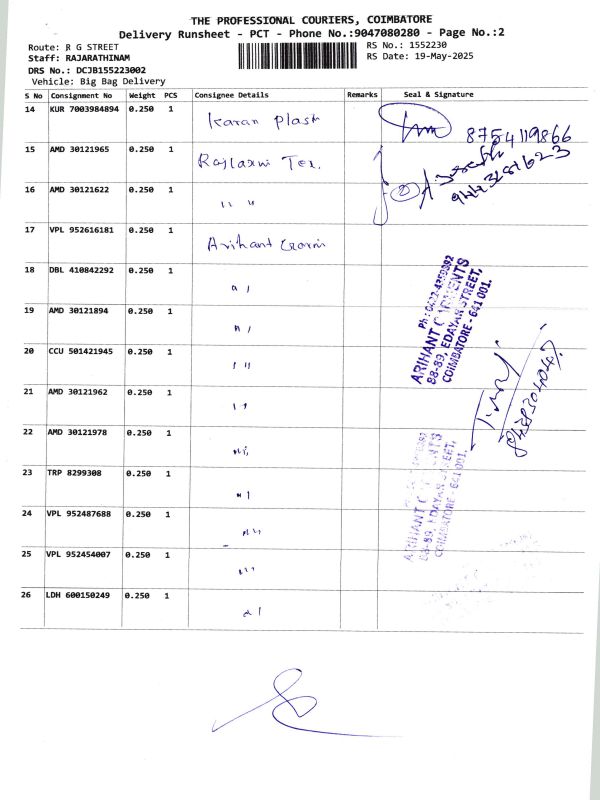 THE PROFESSIONAL COURIERS, COIMBATORE
Delivery Runsheet - PCT - Phone No.:9047080280 - Page No.:2
Route: R G STREET
RS No.: 1552230
Staff: RAJARATHINAM
RS Date: 19-May-2025
DRS No.: DCJB155223002
Vehicle: Big Bag Delivery
S No Consignment No Weight PCS Consignee Details Remarks Seal & Signature
14 KUR 7003984894 0.250 1 Karan Plast
8754119866
15 AMD 30121965 0.250 1 Rajlaxmi Tex.
16 AMD 30121622 0.250 1 " "
17 VPL 952616181 0.250 1 Arihant
18 DBL 410842292 0.250 1 " "
19 AMD 30121894 0.250 1 " "
20 CCU 501421945 0.250 1 " "
21 AMD 30121962 0.250 1 " "
22 AMD 30121978 0.250 1 " "
23 TRP 8299308 0.250 1 " "
24 VPL 952487688 0.250 1 " "
25 VPL 952454007 0.250 1 " "
26 LDH 600150249 0.250 1 " "
ARIHANT GARMENTS
88-89, EDAYAR STREET,
COIMBATORE - 641 001.
ARIHANT GARMENTS
88-89, EDAYAR STREET,
COIMBATORE - 641 001.